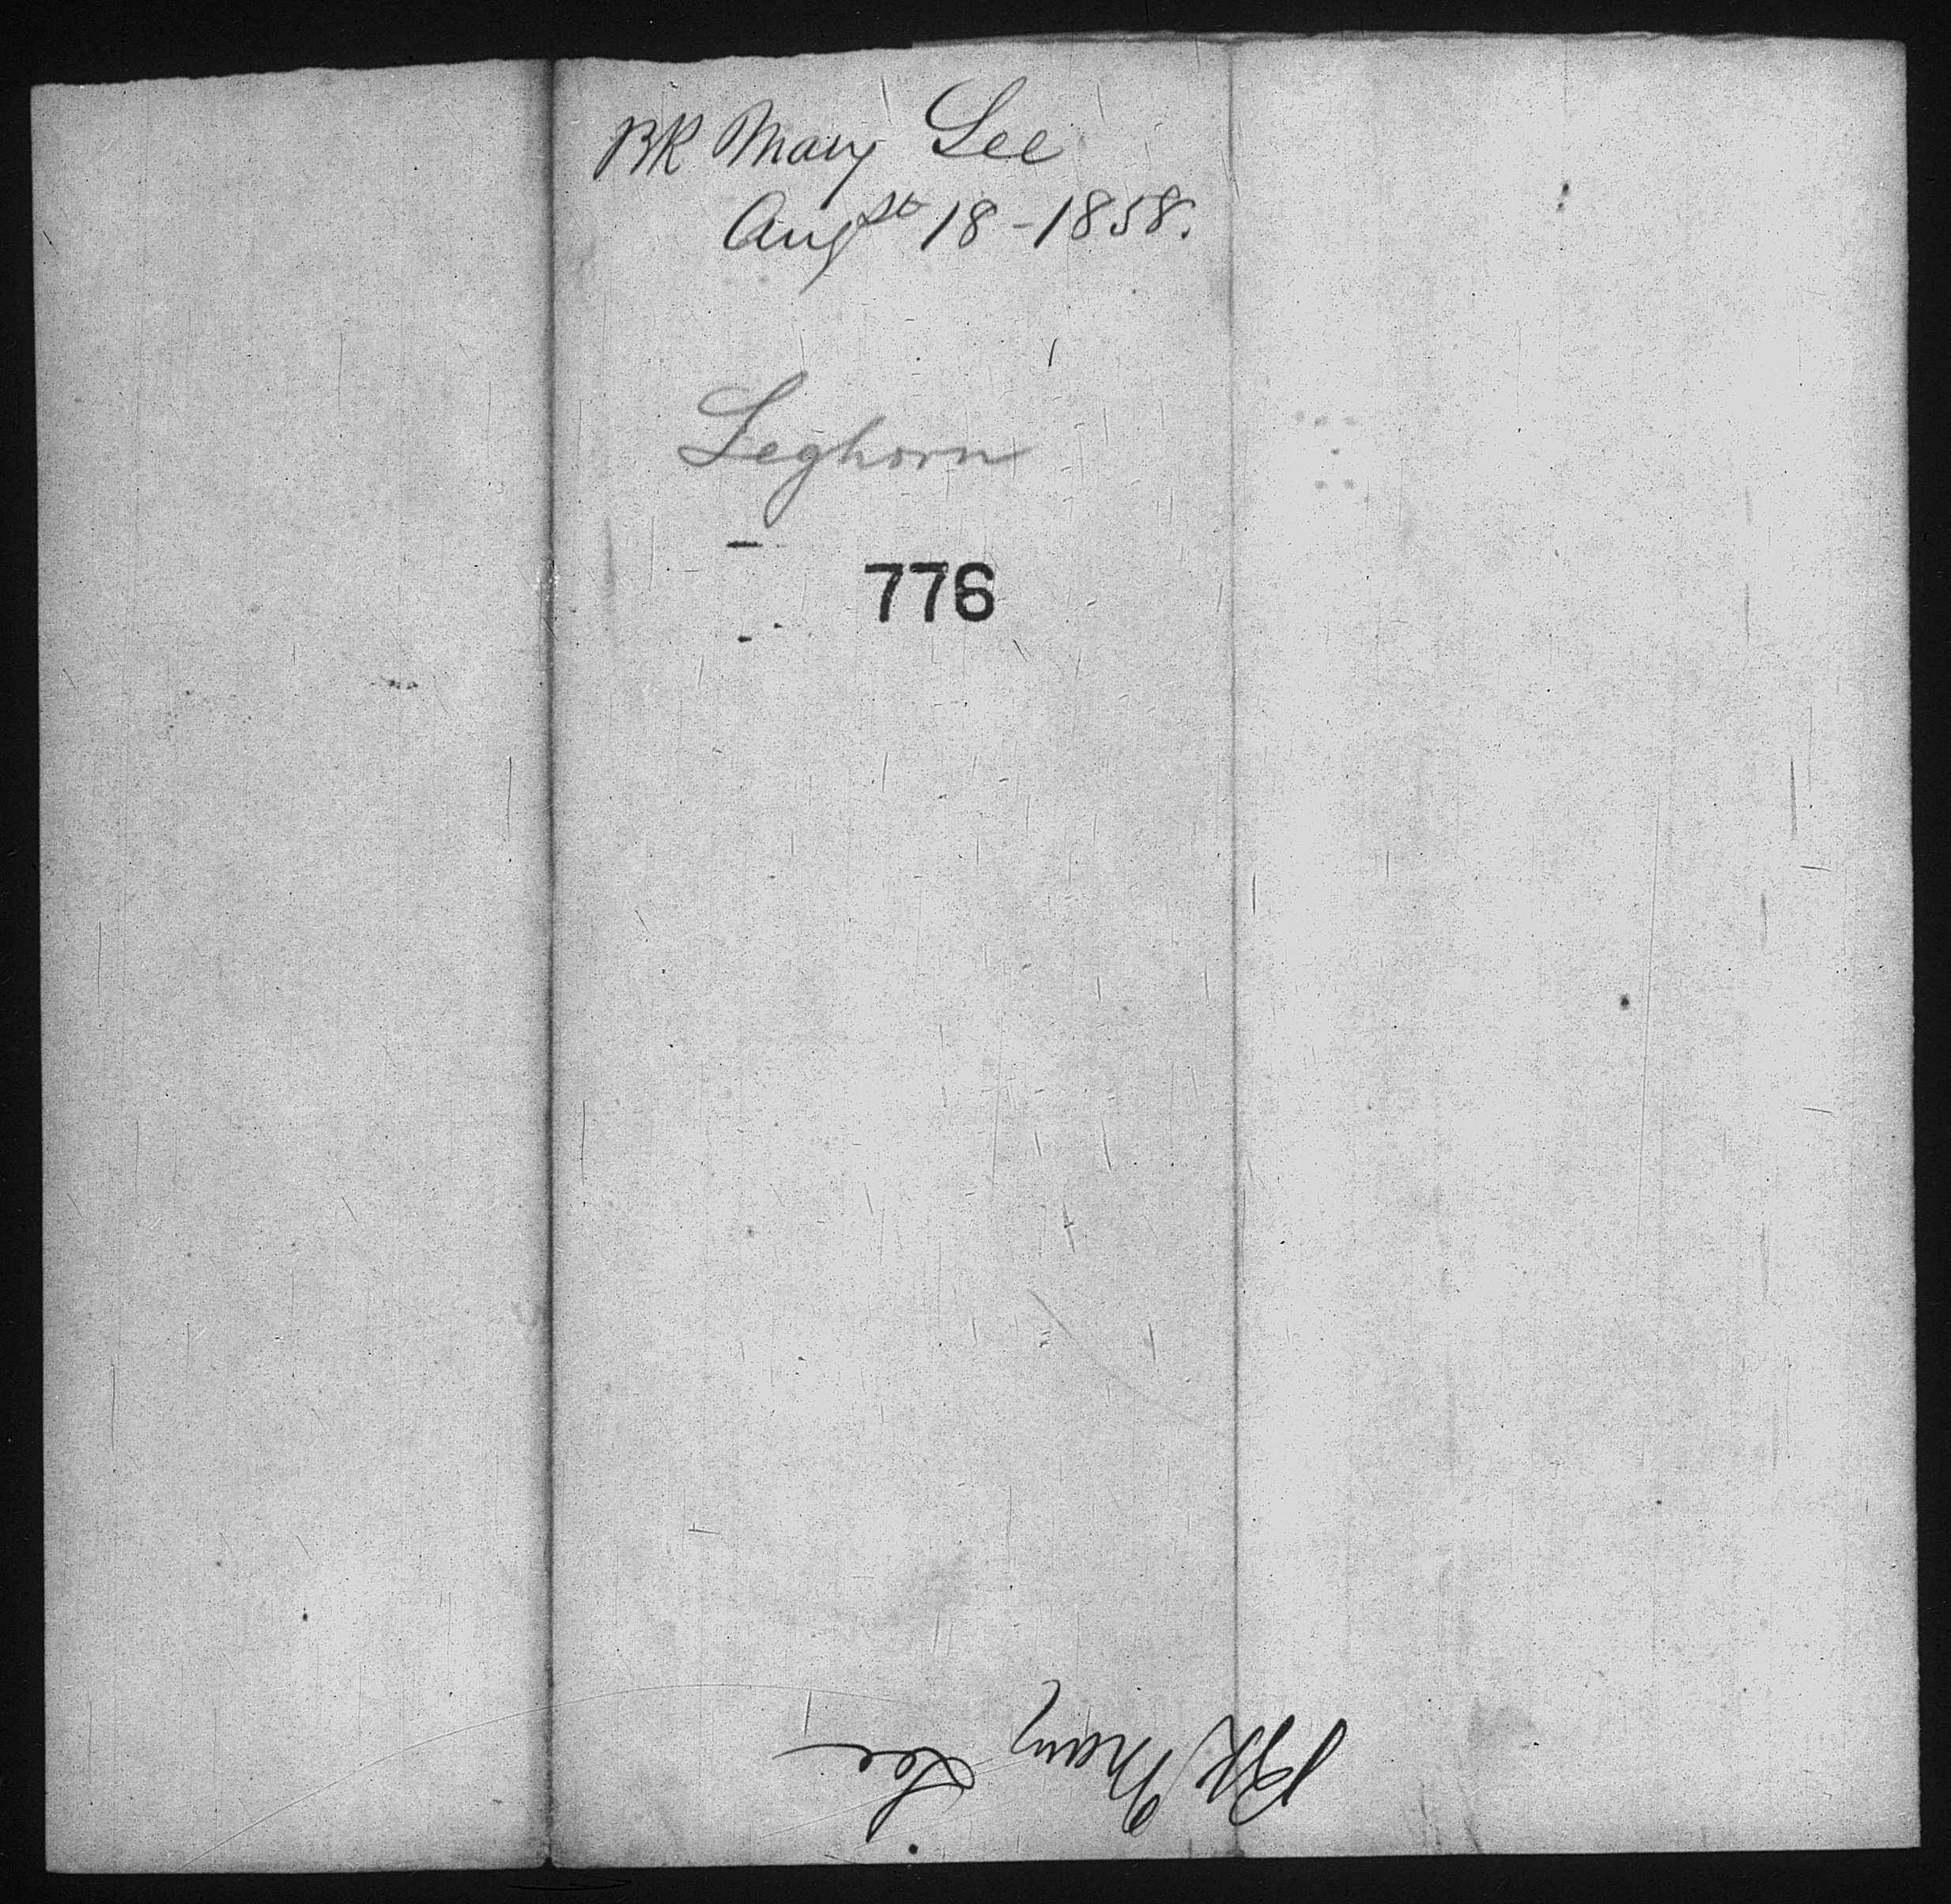 BK Mary Lee
Augst 18-1858.
Leghorn
776
BK Mary Lee